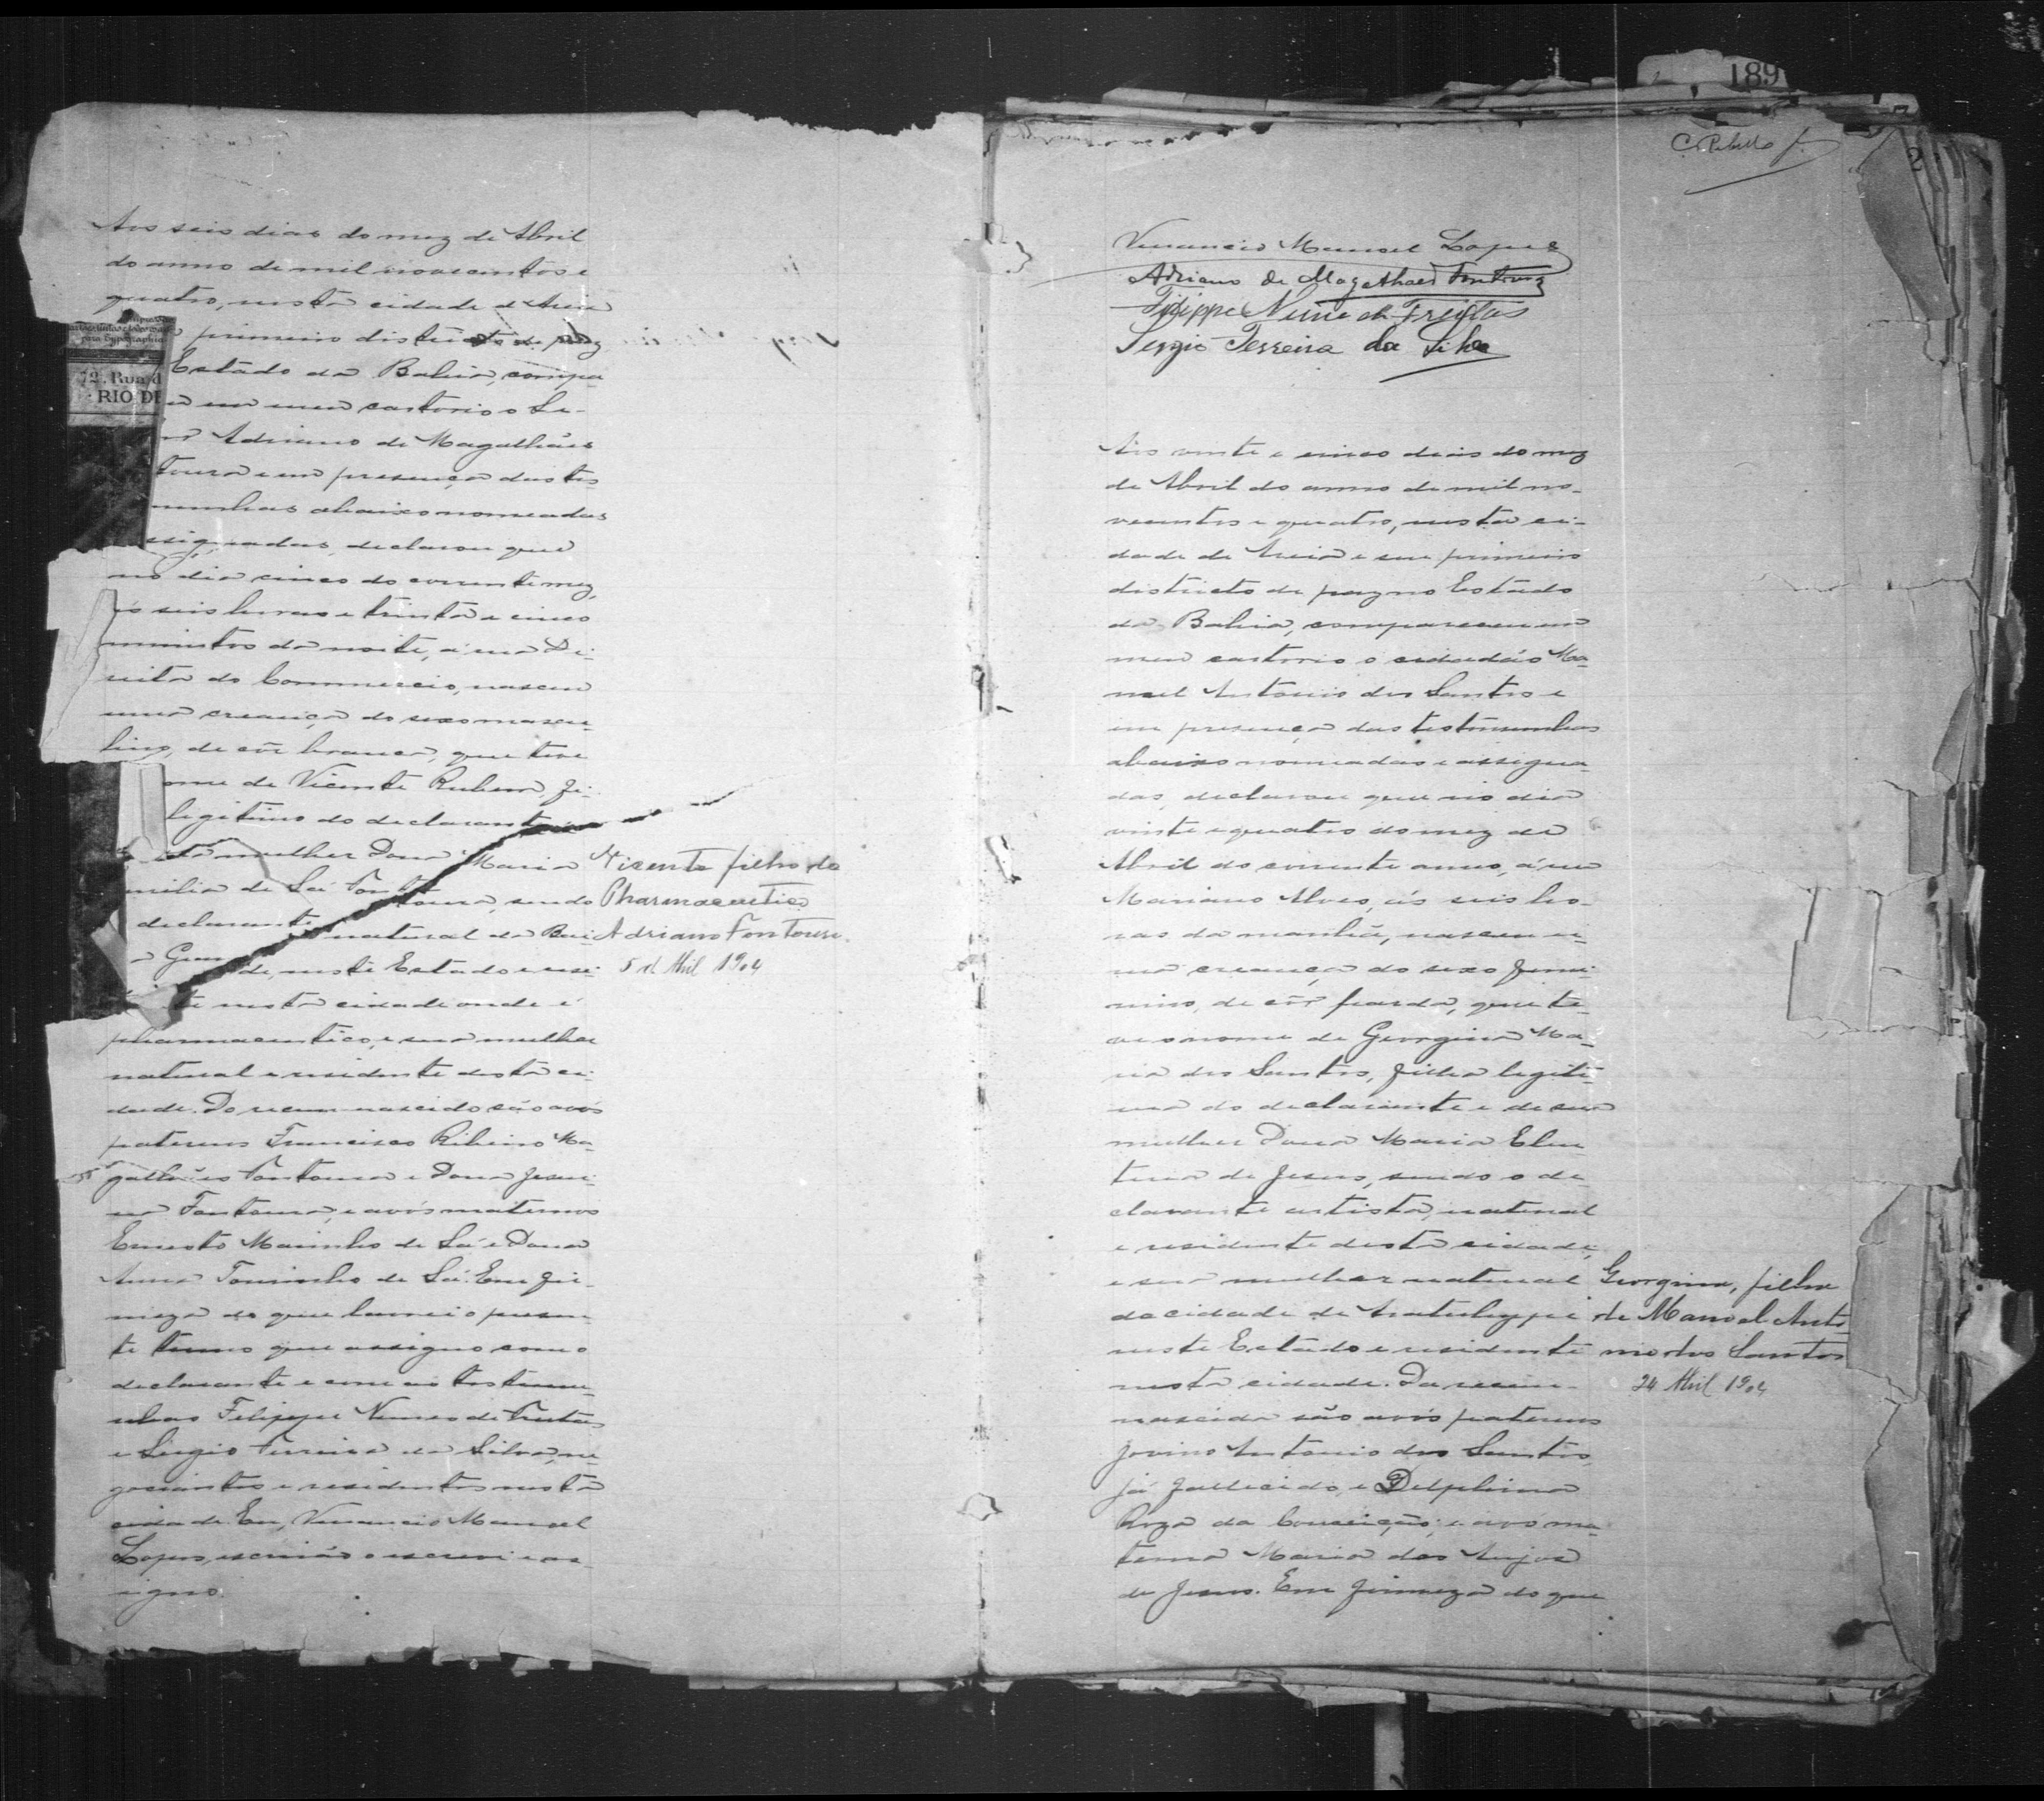 Aos seis dias do mez de Abril
do anno de mil novecentos e
quatro, nesta cidade de Areia
primeiro districto de paz
Estado da Bahia, compa
em meu cartorio o Se-
Adriano de Magalhães
toura e em presença das tes
munhas abaixo nomeadas
ssignadas, declarou que
no dia cinco do corrente mez,
ás seis horas e trinta e cinco
minutos da noite, á rua Di-
reita do Commercio, nasceu
uma creança do sexo mascu-
lino, de côr branca, que teve
ome de Vicente Rubem, fi-
legitimo do declarante
mulher Dona Maria
milia de Sá Fontoura, sendo
declarante natural da Bar
a Grande, neste Estado e resi-
te nesta cidade onde é
pharmaceutico, e sua mulher
natural e residente desta ci-
dade. Do recem-nascido são avós
paternos Francisco Ribeiro Ma-
galhães Fontoura e Dona Jesui-
na Fontoura, e avós maternos
Ernesto Marinho de Sá e Dona
Anna Tourinho de Sá. Em fir-
meza do que lavrei o presen-
te termo que assigno com o
declarante e com as testemu-
nhas Felippe Nunes de Freitas
e Sergio Ferreira da Silva, ne-
gociantes e residentes nesta
cidade. Eu, Venancio Manoel
Lopes, escrivão o escrevi e as-
signo.
Vicente filho do
Pharmaceutico
Adriano Fontoura.
5 d Abril 1904
189
2
Venancio Manoel Lopes
Adriano de Magalhães Fontoura
Filippe Nunes de Freitas
Sergio Ferreira da Silva
Aos vinte e cinco dias do mez
de Abril do anno de mil no-
vecentos e quatro, nesta ci-
dade de Areia e seu primeiro
districto de paz no Estado
da Bahia, compareceu em
meu cartorio o cidadão Ma-
noel Antonio dos Santos e
em presença das testemunhas
abaixo nomeadas e assigna-
das, declarou que no dia
vinte e quatro do mez de
Abril do corrente anno, á rua
Mariano Alves, ás seis ho-
ras da manhã, nasceu u-
ma creança do sexo femi-
nino, de côr parda, que te-
ve o nome de Georgina Ma-
ria dos Santos, filha legiti-
ma do declarante e de sua
mulher Dona Maria Eleu
teria de Jesus, sendo o de
clarante artista, natural
e residente desta cidade,
e sua mulher natural
da cidade de Aratuhype
neste Estado e residente
nesta cidade. Da recem-
nascida são avós paternos
Jovino Antonio dos Santos,
já fallecido, e Delphina
Roza da Conceição; e avó ma-
terna Maria dos Anjos
de Jesus. Em firmeza do que
Georgina, filha
de Manoel Anto-
nio dos Santos
24 Abril 1904
72. Rua d
RIO DE
para typographia